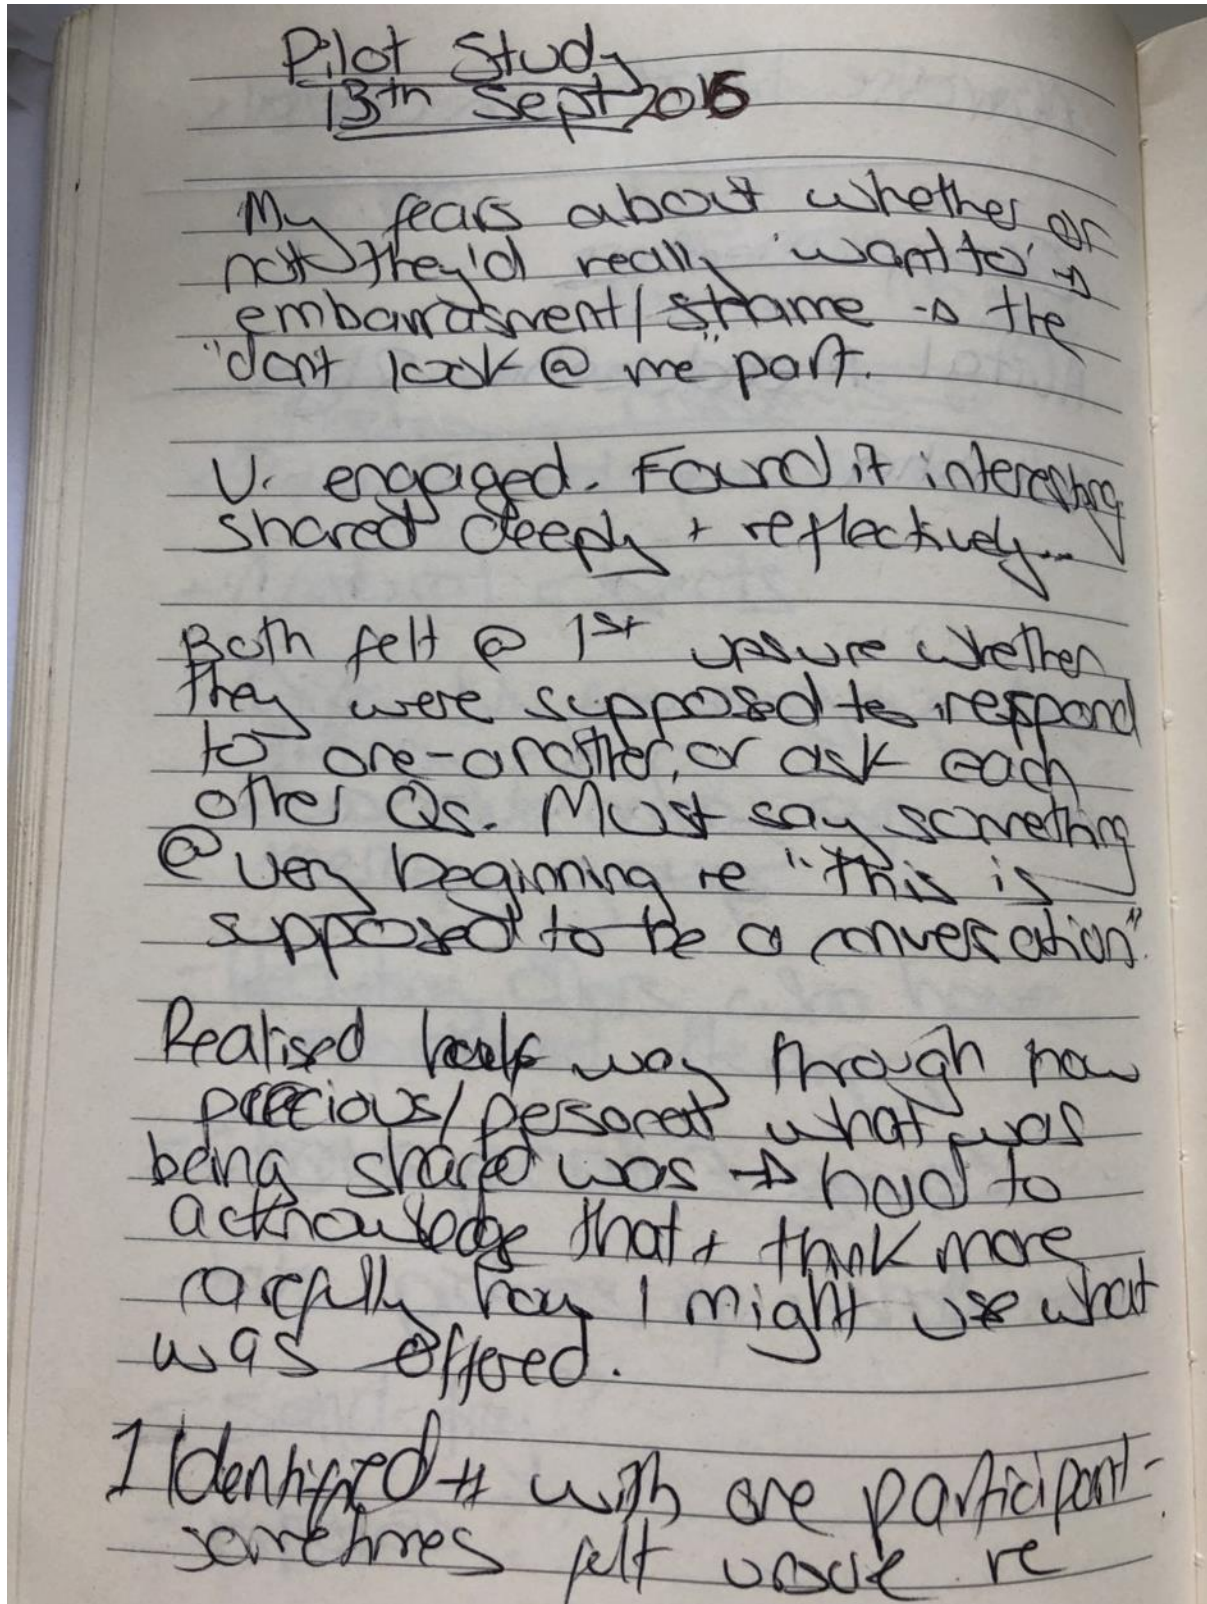 Pilot Study
13th Sept 2016
My fears about whether or
not they'd really 'want to' →
embarrasment/shame → the
"dont look @ me" part.
V. engaged. Found it interesting
shared deeply + reflectively...
Both felt @ 1st unsure whether
they were supposed to respond
to one-another, or ask each
other Qs. Must say something
@ very beginning re "this is
supposed to be a conversation".
Realised half way through how
precious/personal what was
being shared was → had to
acknowledge that + think more
carefully how I might use what
was offered.
I Identified with one participant-
sometimes felt unsure re